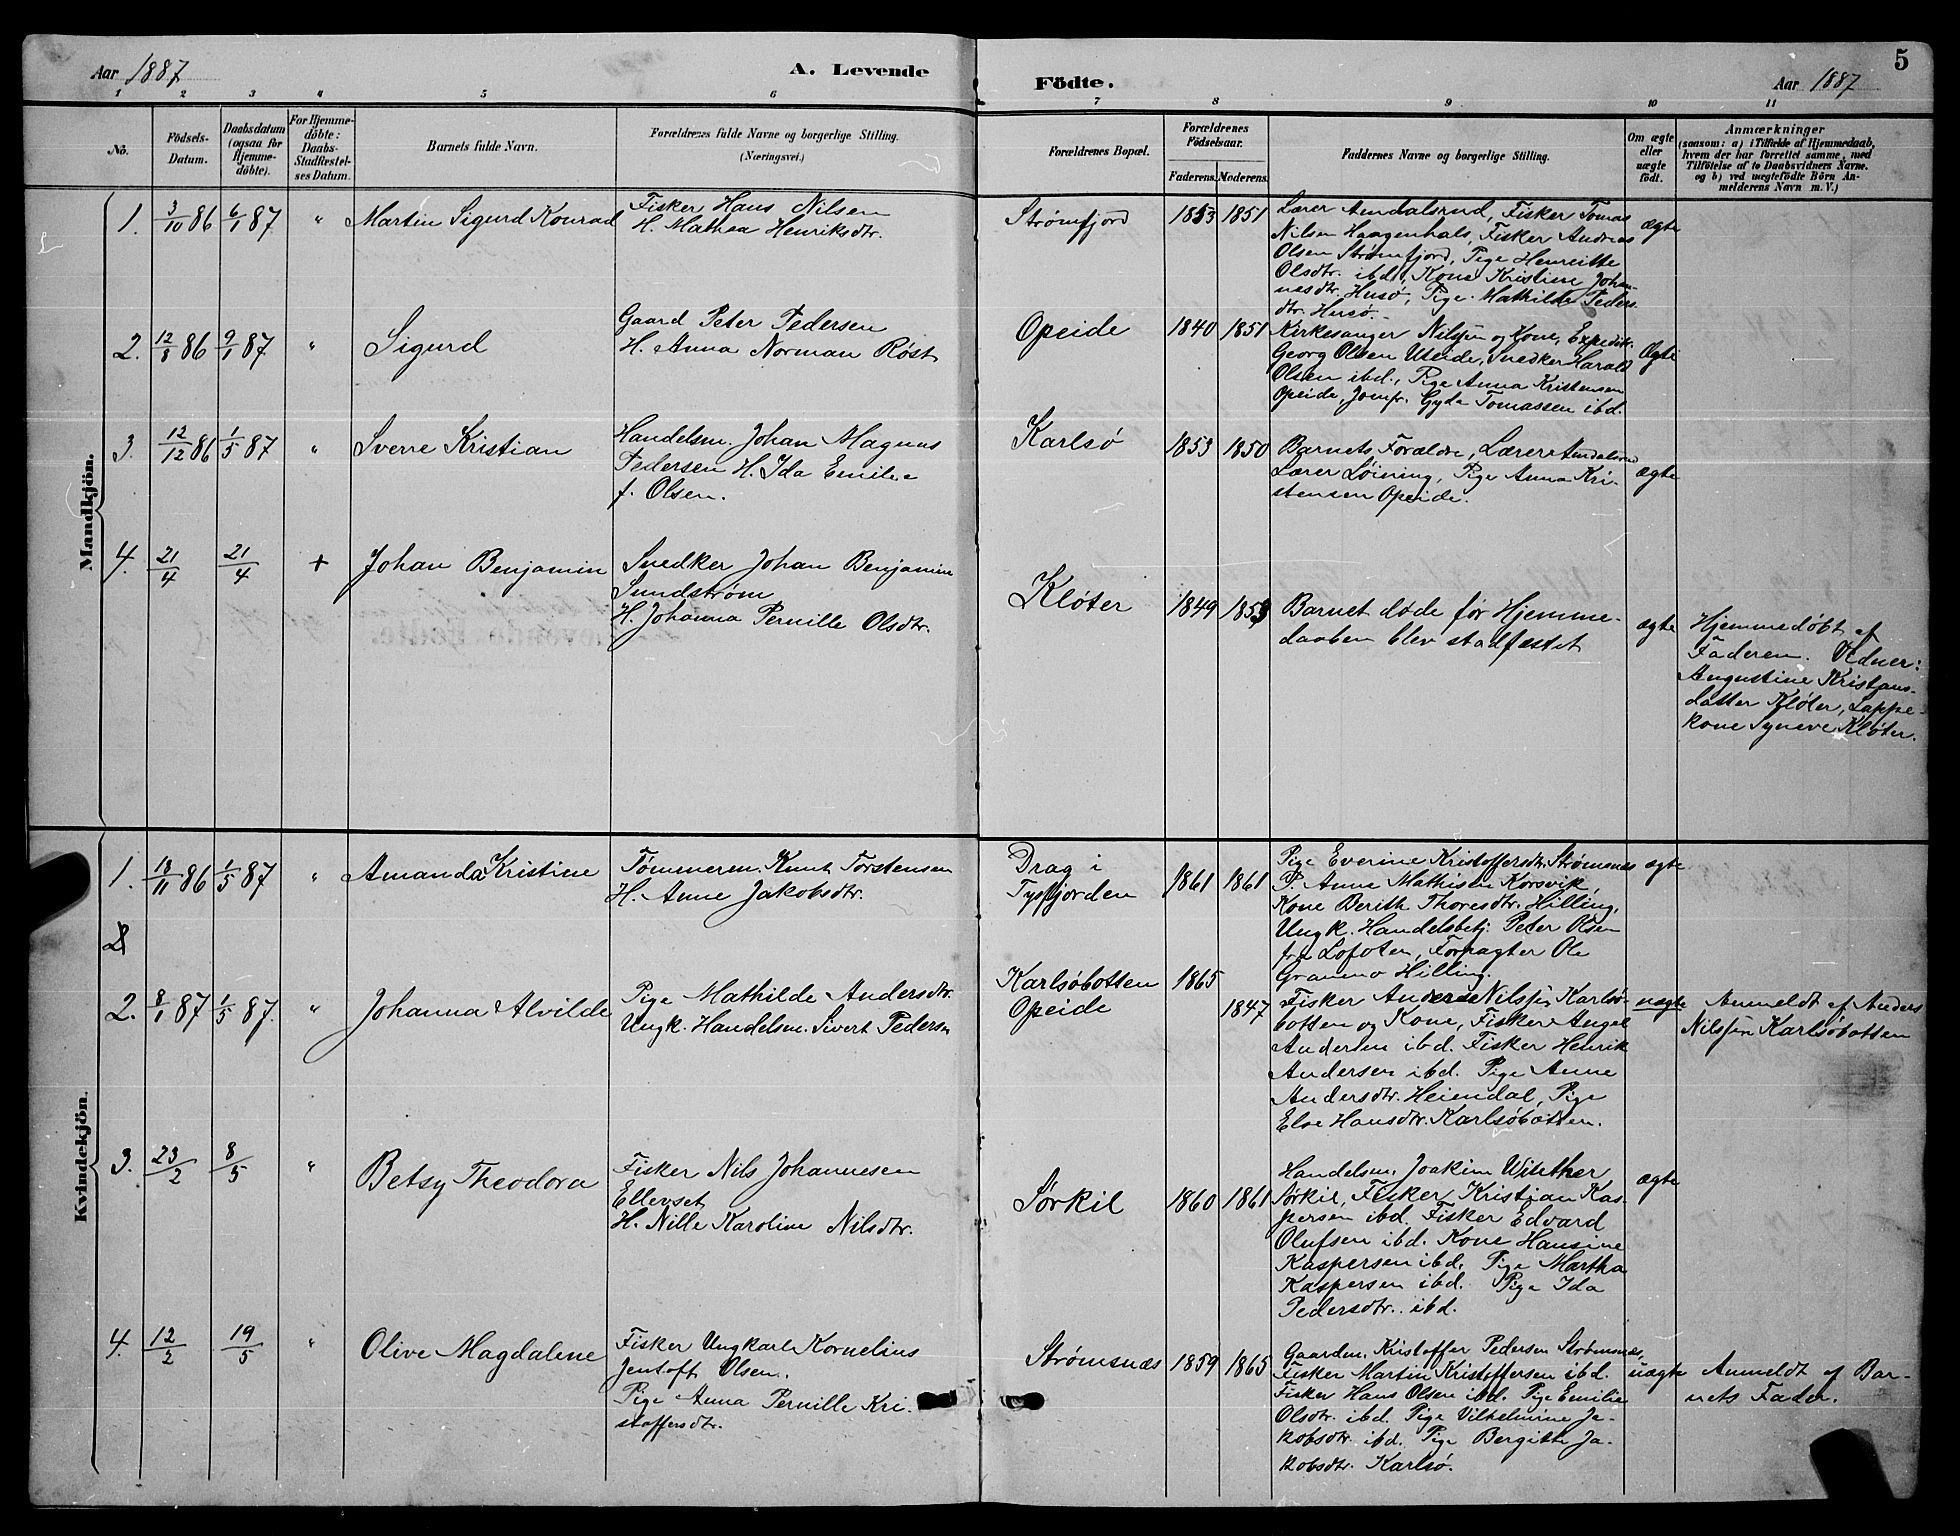 5
Aar 1887
A. Levende
Födte.
Aar 1887
1 2 3 4 5 6 7 8 9 10 11
No.
Födsels-
Datum.
Daabsdatum
(ogsaa for
Hjemme-
döbte).
For Hjemme-
döbte:
Daabs-
Stadfæstel-
ses Datum.
Barnets fulde Navn.
Forældrenes fulde Navne og borgerlige Stilling.
(Næringsvei.)
Forældrenes Bopæl.
Forældrenes
Födselsaar.
Faderens. Moderens.
Faddernes Navne og borgerlige Stilling.
Om ægte
eller
uægte
født.
Anmærkninger
(saasom: a) i Tilfælde af Hjemmedaab,
hvem der har forrettet samme, med
Tilföielse af to Daabsvidners Navne.
og b) ved uægtefödte Börn An-
melderens Navn m. V.)
Mandkjön.
1. 3/10 86 6/1 87 " Martin Sigurd Konrad
Fisker Hans Nilsen
H. Mathea Henriksdtr.
Strømfjord 1853 1851
Lærer Amdalsrud, Fisker Tomas
Nilsen Haagenhals, Fisker Andreas
Olsen Strømfjord, Pige Henriette
Olsdtr. ibd, Kone Kristine Johan-
nesdtr. Husø, Pige Mathilde Peders-
dtr. Husø.
ægte
2. 12/8 86 9/1 87 " Sigurd
Gaard Peter Pedersen
H. Anna Norman Røst
Opeide 1840 1851
Kirkesanger Nilsen og Kone, Expeditr.
Georg Olsen Uteide, Snedker Harald
Olsen ibd., Pige Anna Kristensen
Opeide, Jomfr. Gyda Tomassen ibd.
Ægte
3. 12/12 86 1/5 87 " Sverre Kristian
Handelsm. Johan Magnus
Pedersen H. Ida Emilie
f. Olsen.
Karlsø 1853 1850
Barnets Forældre, Lærer Amdalsrud
Lærer Løining, Pige Anna Kri-
stensen Opeide.
ægte
4. 21/4 21/4 + Johan Benjamin
Snedker Johan Benjamin
Sundstrøm
H. Johanna Pernille Olsdtr.
Kløter 1849 1853
Barnet døde før Hjemme-
daaben blev stadfæstet
ægte
Hjemmedøbt af
Faderen. Vidner:
Augustine Kristians-
datter Kløter, Lappe-
kone Syneve Kløter.
Kvindekjön.
1. 18/11 86 1/5 87 " Amanda Kristine
Tømmerm. Knut Torstensen
H. Anne Jakobsdtr.
Drag i
Tysfjorden
1861 1861
Pige Everine Kristoffersdtr. Strømsnes
P. Anna Mathisen Korsvik,
Kone Berith Thoresdtr. Hilling,
Ungk. Handelsbetj. Peter Olsen
fra Lofoten, Forpagter Ole
Granmo Hilling.
ægte
2. 8/1 87 1/5 87. " Johanna Alvilde
Pige Mathilde Andersdtr.
Ungk. Handelsm. Sivert Peders
Karlsøbotten
Opeide
1865
1847
Fisker Anders Nilssen Karlsø-
botten og Kone, Fisker Angel
Andersen ibd. Fisker Henrik
Andersen ibd. Pige Anne
Andersdtr. Heiendal, Pige
Eloe Hansdtr. Karlsøbotten.
uægte
Anmeldt af Anders
Nilssen Karlsøbotten
3. 23/2 8/5 " Betsy Theodora
Fisker Nils Johannesen
Ellevset
H. Nille Karoline Nilsdtr.
Sørkil 1860 1861
Handelsm. Joakim Witther
Sørkil, Fisker Kristian Kas-
persen ibd. Fisker Edvard
Olufsen ibd. Kone Hansine
Kaspersen ibd, Pige Martha
Kaspersen ibd. Pige Ida
Pedersdtr. ibd.
ægte
4. 12/2 19/5 " Olive Magdalene
Fisker Ungkarl Kornelius
Jentoft Olsen.
Pige Anna Pernille Kri-
stoffersdtr.
Strømsnæs 1859 1865
Gaardm. Kristoffer Pedersen Strømsnæs,
Fisker Martin Kristoffersen ibd.
Fisker Hans Olsen ibd. Pige Emilie
Olsdtr. ibd. Pige Vilhelmine Ja-
kobsdtr. ibd. Pige Bergitte Ja-
kobsdtr. Karlsø.
uægte
Anmeldt af Bar-
nets Fader.